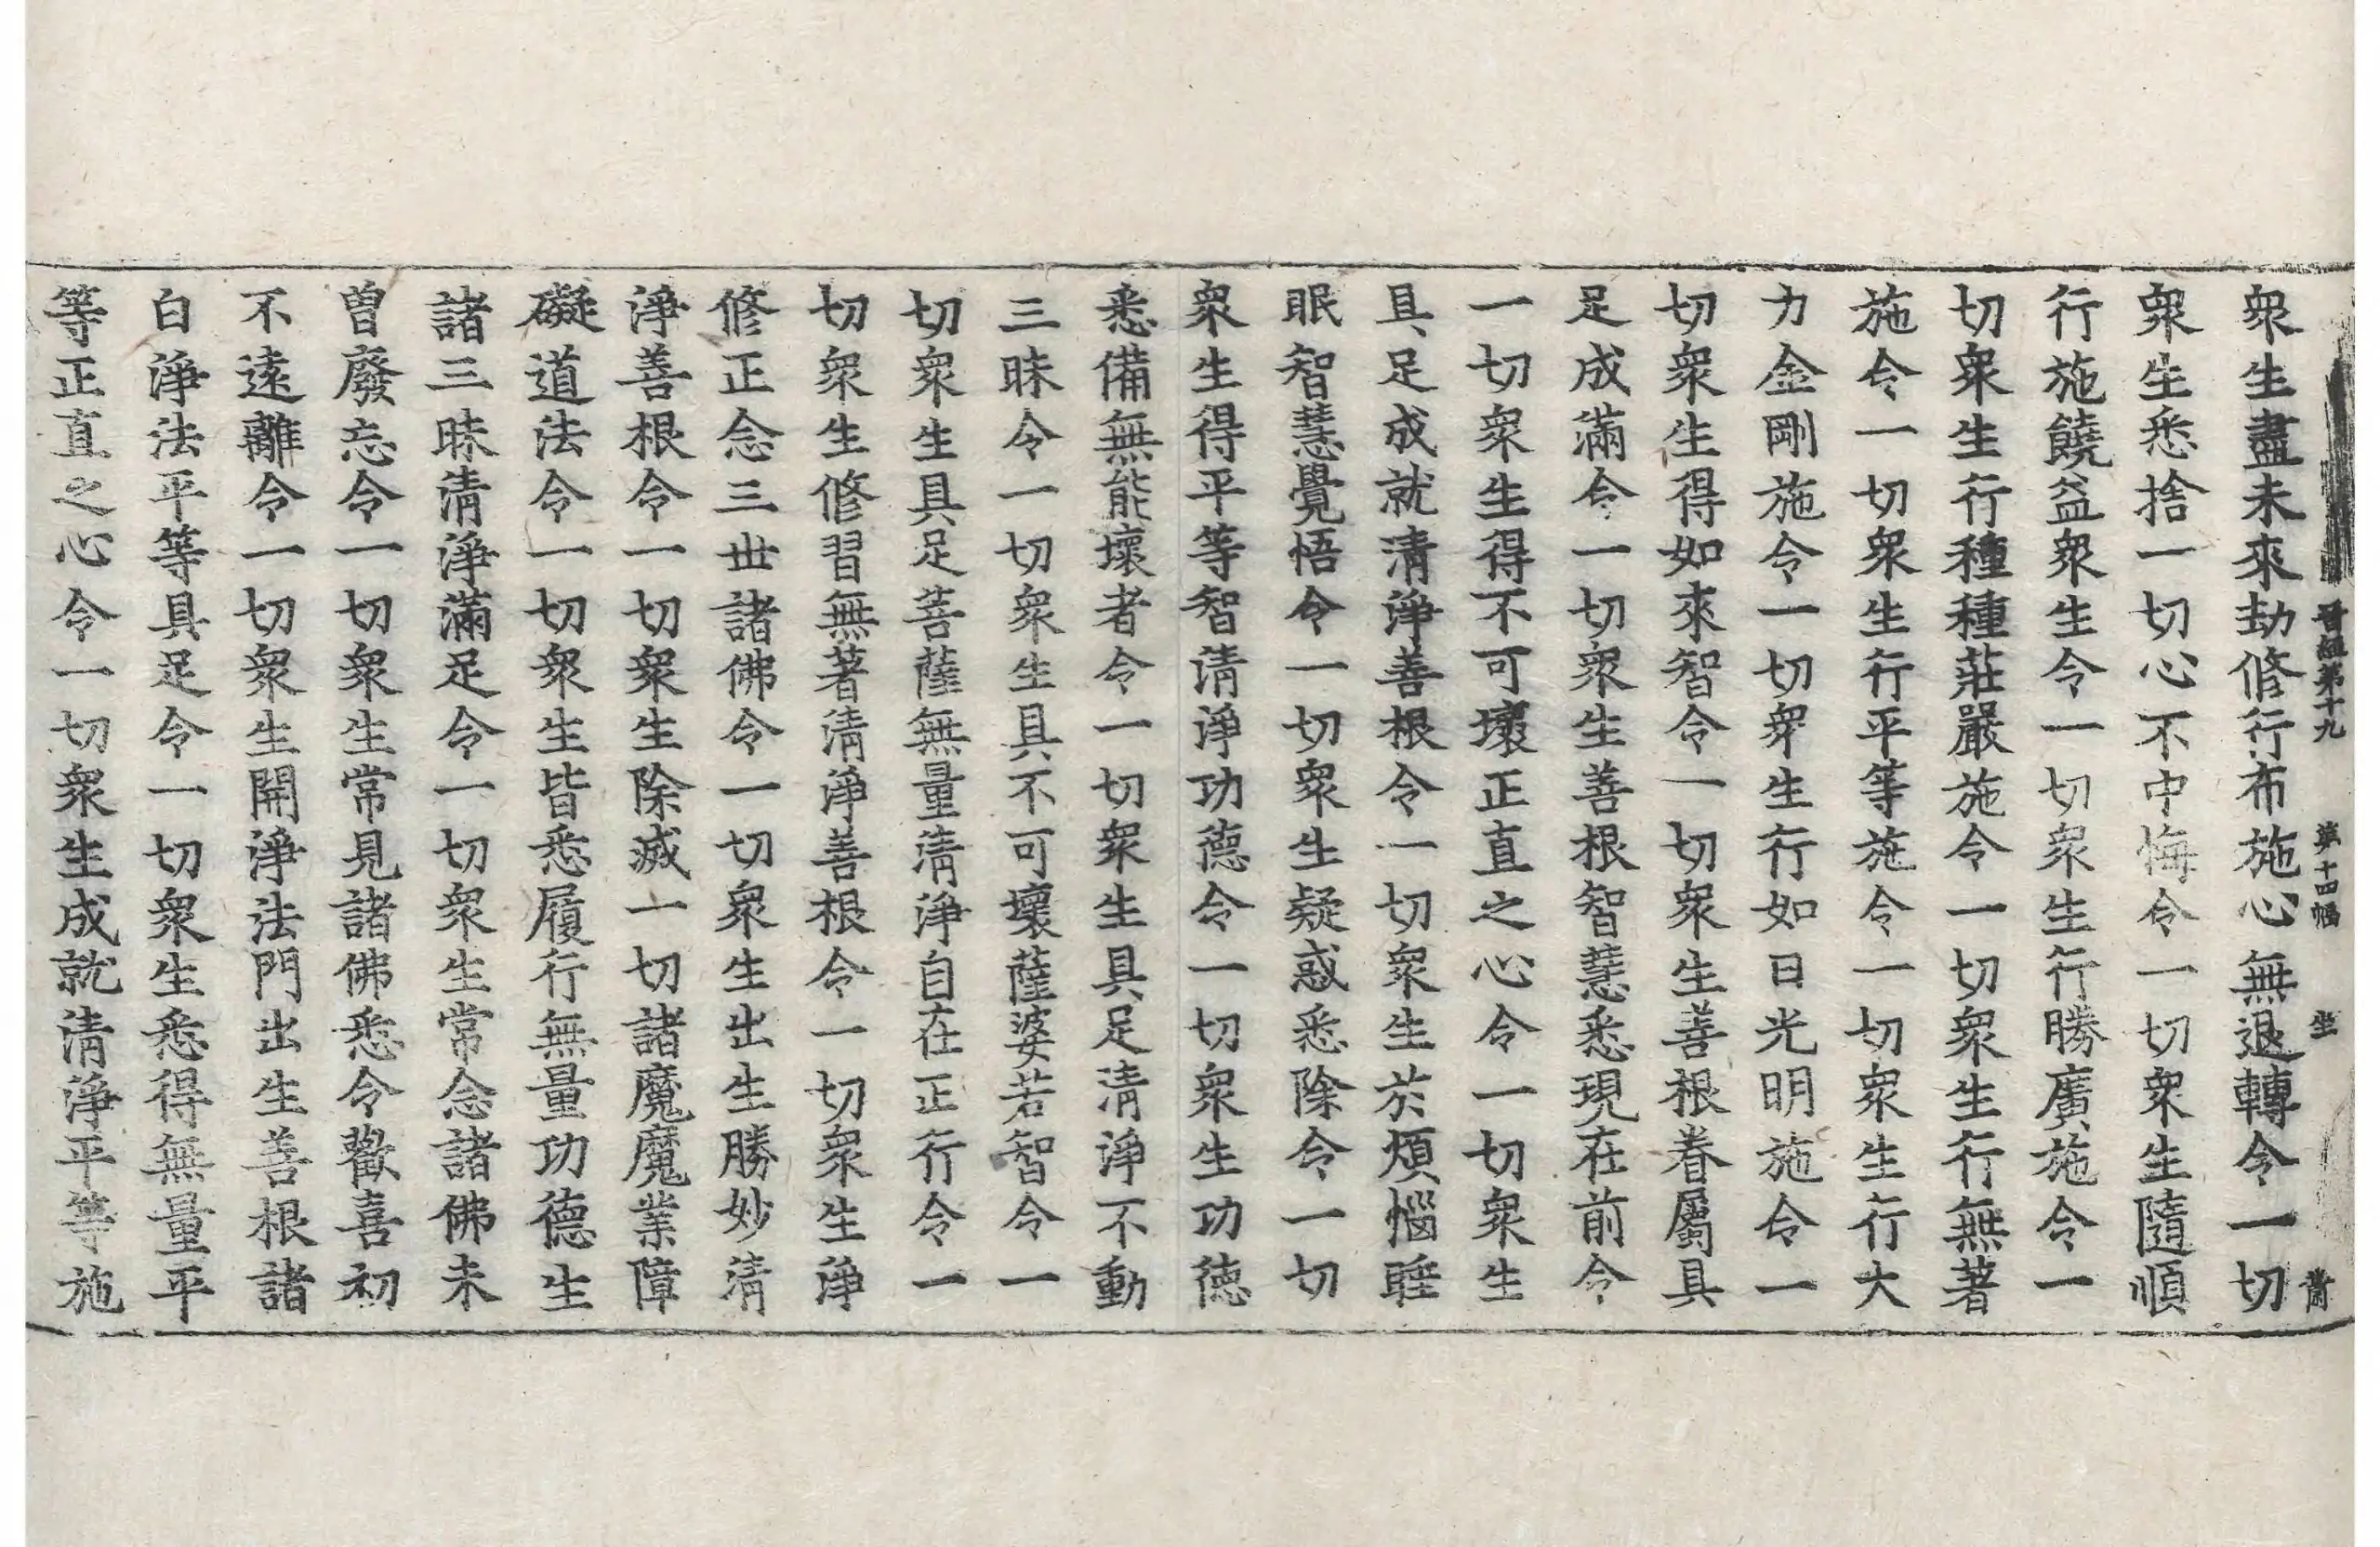 晉經第十九 第十四幅 坐 常
衆生盡未來劫修行布施心無退轉令一切
衆生悉捨一切心不中悔令一切衆生隨順
行施饒益衆生令一切衆生行勝廣施令一
切衆生行種種莊嚴施令一切衆生行無著
施令一切衆生行平等施令一切衆生行大
力金剛施令一切衆生行如日光明施令一
切衆生得如來智令一切衆生善根眷屬具
足成滿令一切衆生善根智慧悉現在前令
一切衆生得不可壞正直之心令一切衆生
具足成就清淨善根令一切衆生於煩惱睡
眠智慧覺悟令一切衆生疑惑悉除令一切
衆生得平等智清淨功德令一切衆生功德
悉備無能壞者令一切衆生具足清淨不動
三昧令一切衆生具不可壞薩婆若智令一
切衆生具足菩薩無量清淨自在正行令一
切衆生修習無著清淨善根令一切衆生淨
修正念三世諸佛令一切衆生出生勝妙清
淨善根令一切衆生除滅一切諸魔魔業障
礙道法令一切衆生皆悉履行無量功德生
諸三昧清淨滿足令一切衆生常念諸佛未
曾廢忘令一切衆生常見諸佛悉令歡喜初
不遠離令一切衆生開淨法門出生善根諸
白淨法平等具足令一切衆生悉得無量平
等正直之心令一切衆生成就清淨平等施